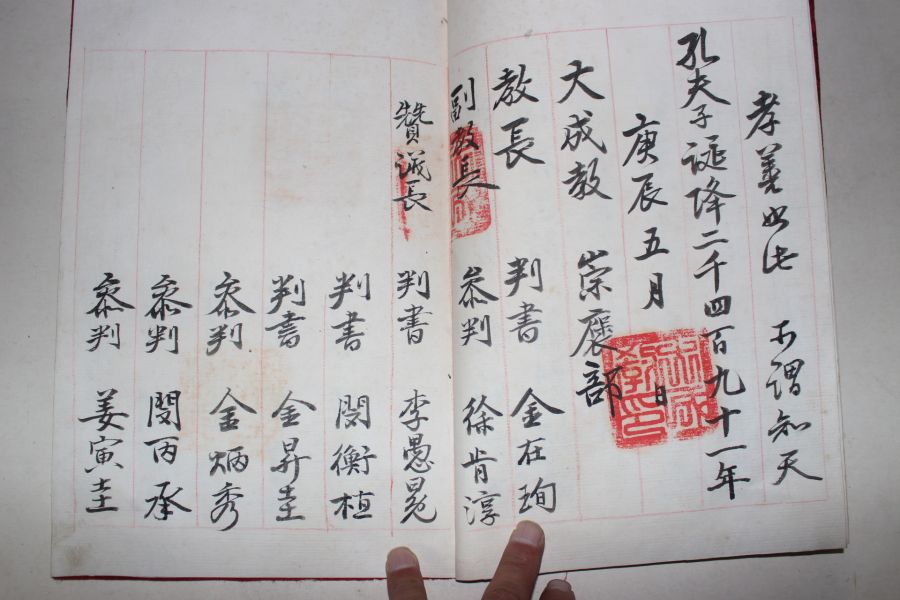 孝義如此 可謂知天
孔夫子誕降二千四百九十一年
庚辰五月 日
大成教 崇褒部
教長 判書 金在珣
副教長 參判 徐肯淳
贊議長 判書 李愚冕
判書 閔衡植
判書 金昇圭
參判 金炳秀
參判 閔丙承
參判 姜寅圭